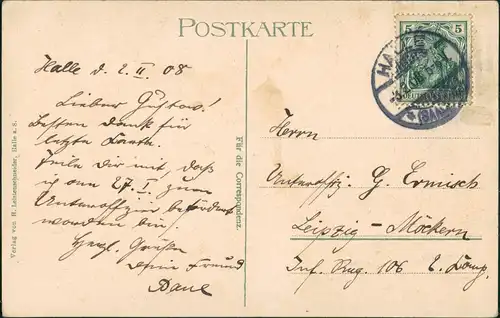 POSTKARTE
Halle d. 2. II. 08
Lieber Gustav!
Besten Dank für
letzte Karte.
Teile Dir mit, daß
ich am 27. I. zum
Unteroffizier befördert
worden bin.
Herzl. Grüße
Dein Freund
Für die Correspondenz.
Verlag von H. Leinenschneider, Halle a. S.
5 5
HAL
Herrn
Unteroffz. G. Ermisch
Leipzig-Möckern
Inf. Reg. 106 2. Komp.